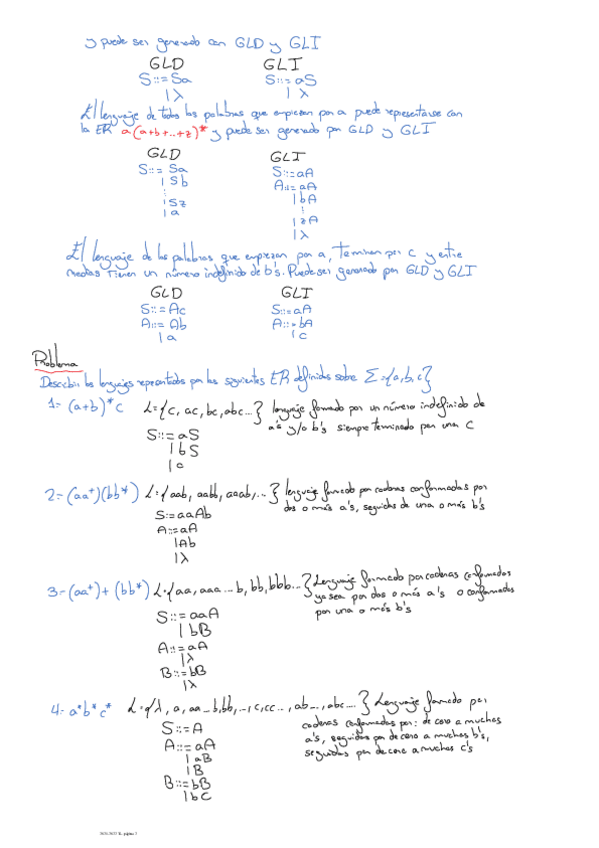 y puede ser generado con GLD y GLI
GLD GLI
S::= Sa S::= aS
| λ | λ
El lenguaje de todas las palabras que empiezan por a puede representarse con
la ER a(a+b+...+z)* y puede ser generado por GLD y GLI
GLD GLI
S::= Sa S::= aA
| Sb A::= aA
⋮ | bA
| Sz ⋮
| a | zA
| λ
El lenguaje de las palabras que empiezan por a, terminan por c y entre
medias tienen un número indefinido de b's. Puede ser generado por GLD y GLI
GLD GLI
S::= Ac S::= aA
A::= Ab A::= bA
| a | c
Problema
Describir los lenguajes representados por las siguientes ER definidas sobre Σ={a,b,c}
1- (a+b)*c L={c, ac, bc, abc...} lenguaje formado por un número indefinido de
a's y/o b's siempre terminado por una c
S::= aS
| bS
| c
2- (aa⁺)(bb*) L={aab, aabb, aaab,...} lenguaje formado por cadenas conformadas por
dos o más a's, seguidas de una o más b's
S::= aaAb
A::= aA
| Ab
| λ
3- (aa⁺)+(bb*) L={aa, aaa... b, bb, bbb...} Lenguaje formado por cadenas conformadas
ya sea por dos o más a's o conformados
por una o más b's
S::= aaA
| bB
A::= aA
| λ
B::= bB
| λ
4- a*b*c* L={λ, a, aa... b, bb, ..., c, cc..., ab..., abc...} Lenguaje formado por
cadenas conformadas por: de cero a muchas
a's, seguidas por de cero a muchas b's,
seguidas por de cero a muchas c's
S::= A
A::= aA
| aB
| B
B::= bB
| bC